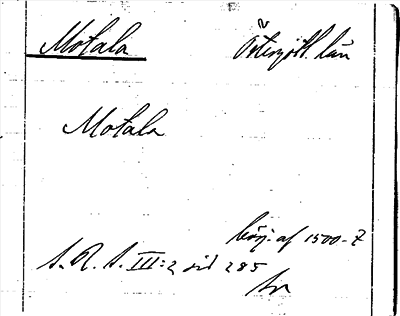 Motala Östergötl. län
Motala
börj. af 1500-t
S.R.S. III:2 sid 285